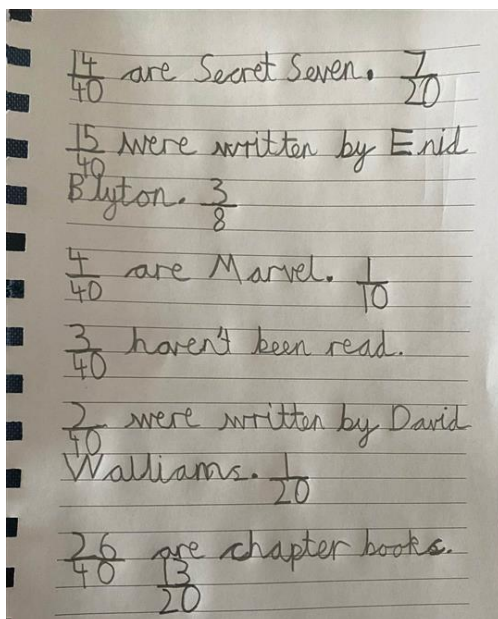 14/40 are Secret Seven. 7/20
15/40 were written by Enid
Blyton. 3/8
4/40 are Marvel. 1/10
3/40 haven't been read.
2/40 were written by David
Walliams. 1/20
26/40 are chapter books.
13/20